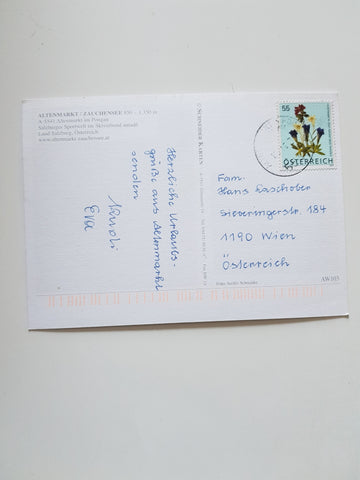 ALTENMARKT / ZAUCHENSEE 850 - 1.350 m
A-5541 Altenmarkt im Pongau
Salzburger Sportwelt im Skiverbund amadé
Land Salzburg, Österreich
www.altenmarkt-zauchensee.at
Herzliche Urlaubs-
grüße aus Altenmarkt
senden
Eva
© SCHNEIDER KARTEN
55
ÖSTERREICH
Fam.
Hans Laschober
Sieveringerstr. 184
1190 Wien
Österreich
AW 103